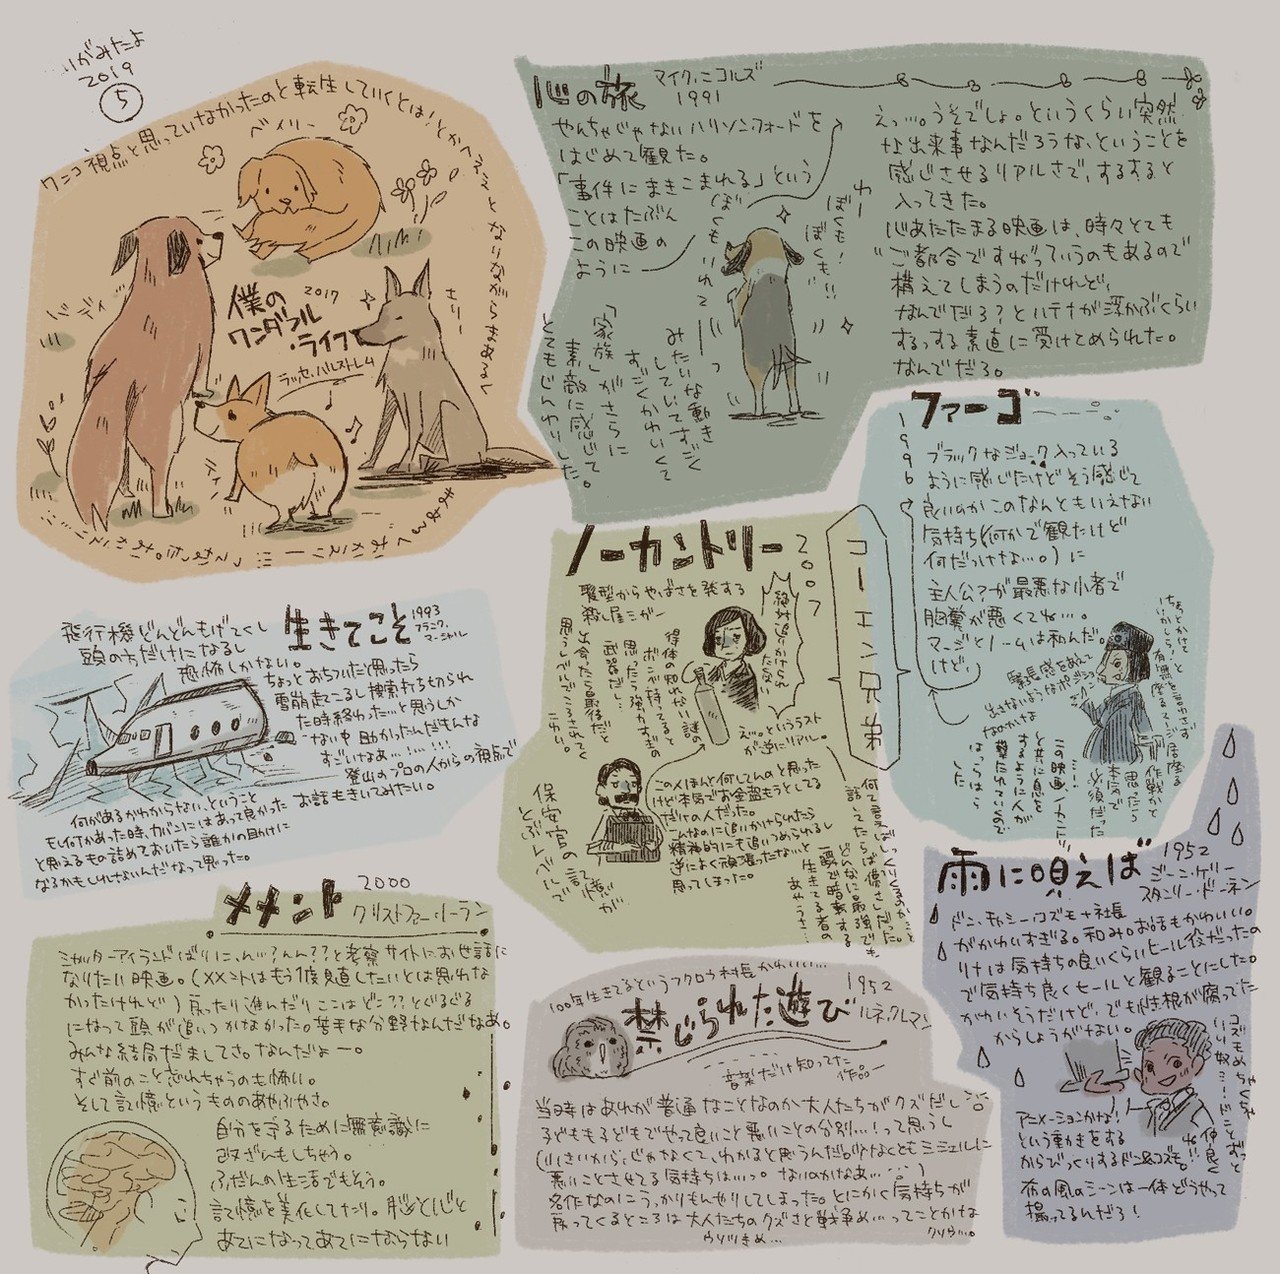 いがみたよ
2019
⑤
ワンコ視点と思っていなかったのと転生していくとは！とかへえ～となりながら
ベイリー
僕の
ワンダフル
・ライフ
2017
ラッセ・ハルストレム
エリー
ティノ
バディ
心の旅
マイク・ニコルズ
1991
やんちゃじゃないハリソンフォードを
はじめて観た。
「事件にまきこまれる」という
ことはたぶん
この映画の
ように
わー
ぼくも！
ぼくも！
ぼくもいれてーっ
みたいな動き
していてすごく
すごくかわいくて
「家族」がさらに
素敵に感じて
とてもじんわりした。
えっ…。うそでしょ。というくらい突然
な出来事なんだろうな、ということを
感じさせるリアルさで、するすると
入ってきた。
心あたたまる映画は、時々とても
"ご都合ですがっていうのもあるので
構えてしまうのだけれど、
なんでだろ？とハテナが浮かぶくらい
するする素直に受けとめられた。
なんでだろ。
ファーゴ
1996
ブラックなジョーク入っている
ように感じたけどそう感じて
良いのかこのなんともいえない
気持ち(何かで観たけど
何だっけな…。)に
主人公？が最悪な小者で
胸糞が悪くてね…。
マージとノームは和んだ。
けど、
ノーカントリー
2007
コーエン兄弟
髪型からやばさを発する
殺し屋シガー
得体の知れない謎の
ボンベ持ってると
思ったら強力すぎの
武器だし
出会ったら最後だと
思うしでいでころされて
こわい。
え。というラスト
が逆にリアル。
この人ほんと何してんのと思った
けど本気でお金盗もうとしてる
だけの人だった。
こんなのに追いかけられたら
精神的にも追いつめられるし
逆によく頑張ったな…と
思ってしまった。
生きてこそ
1993
フランク・
マーシャル
飛行機どんどんもげてくし
頭の方だけになるし
恐怖しかない。
ちょっとおちついたと思ったら
雪崩起こるし捜索打ち切られ
た時終わった…と思うしか
ない中助かったんだもんな
すごいなぁ…！…！！
登山のプロの人からの視点で
お話もきいてみたい。
何があるかわからない、ということ
もし何かあった時、カバンにはあって良かった
と思えるもの詰めておいたら誰かの助けに
なるかもしれないんだなって思った。
メメント
2000
クリストファー・ノーラン
シャッターアイランドばりに、ん？ん？？と考察サイトにお世話に
なりたい映画。(メメントはもう1度見直したいとは思わな
かったけれど)戻ったり進んだりここはどこ？？とぐるぐる
になって頭が追いつかなかった。苦手な分野なんだなあ。
みんな結局だましてさ。なんだよー。
すぐ前のこと忘れちゃうのも怖い。
そして記憶というもののあやふやさ。
自分を守るために無意識に
改ざんもしちゃう。
ふだんの生活でもそう。
記憶を美化してたり。脳と心と
あてになってあてにならない
100年生きてるというフクロウ村長かわいい…
禁じられた遊び
1952
ルネ・クレマン
音楽だけ知ってた
作品ー
当時はあれが普通なことなのか大人たちがクズだし
子どもも子どもでやって良いこと悪いことの分別…！って思うし
(小さいから、じゃなくて、わかると思うんだ。少なくともミシェルに
悪いことさせてる気持ちは…っ。ないのかなあ…)
名作なのにうっかりもんやりしてしまった。とにかく気持ちが
戻ってくるところは大人たちのクズさと戦争め…ってことかな
雨に唄えば
1952
ジーン・ケリー
スタンリー・ドーネン
ドン、キャシー、コズモ+社長
がかわいすぎる。和み。お話もかわいい。
リナは気持ちの良いくらいヒール役だったの
で気持ち良くヒールと観ることにした。
かわいそうだけど、でも性根が腐ってた
からしょうがない。
コズモめちゃくちゃ
いい奴…ドンとずっと
仲良く
アニメーションかな！
という動きをする
からびっくりするドン&コズモ。
布の風のシーンは一体どうやって
撮ってるんだろ！